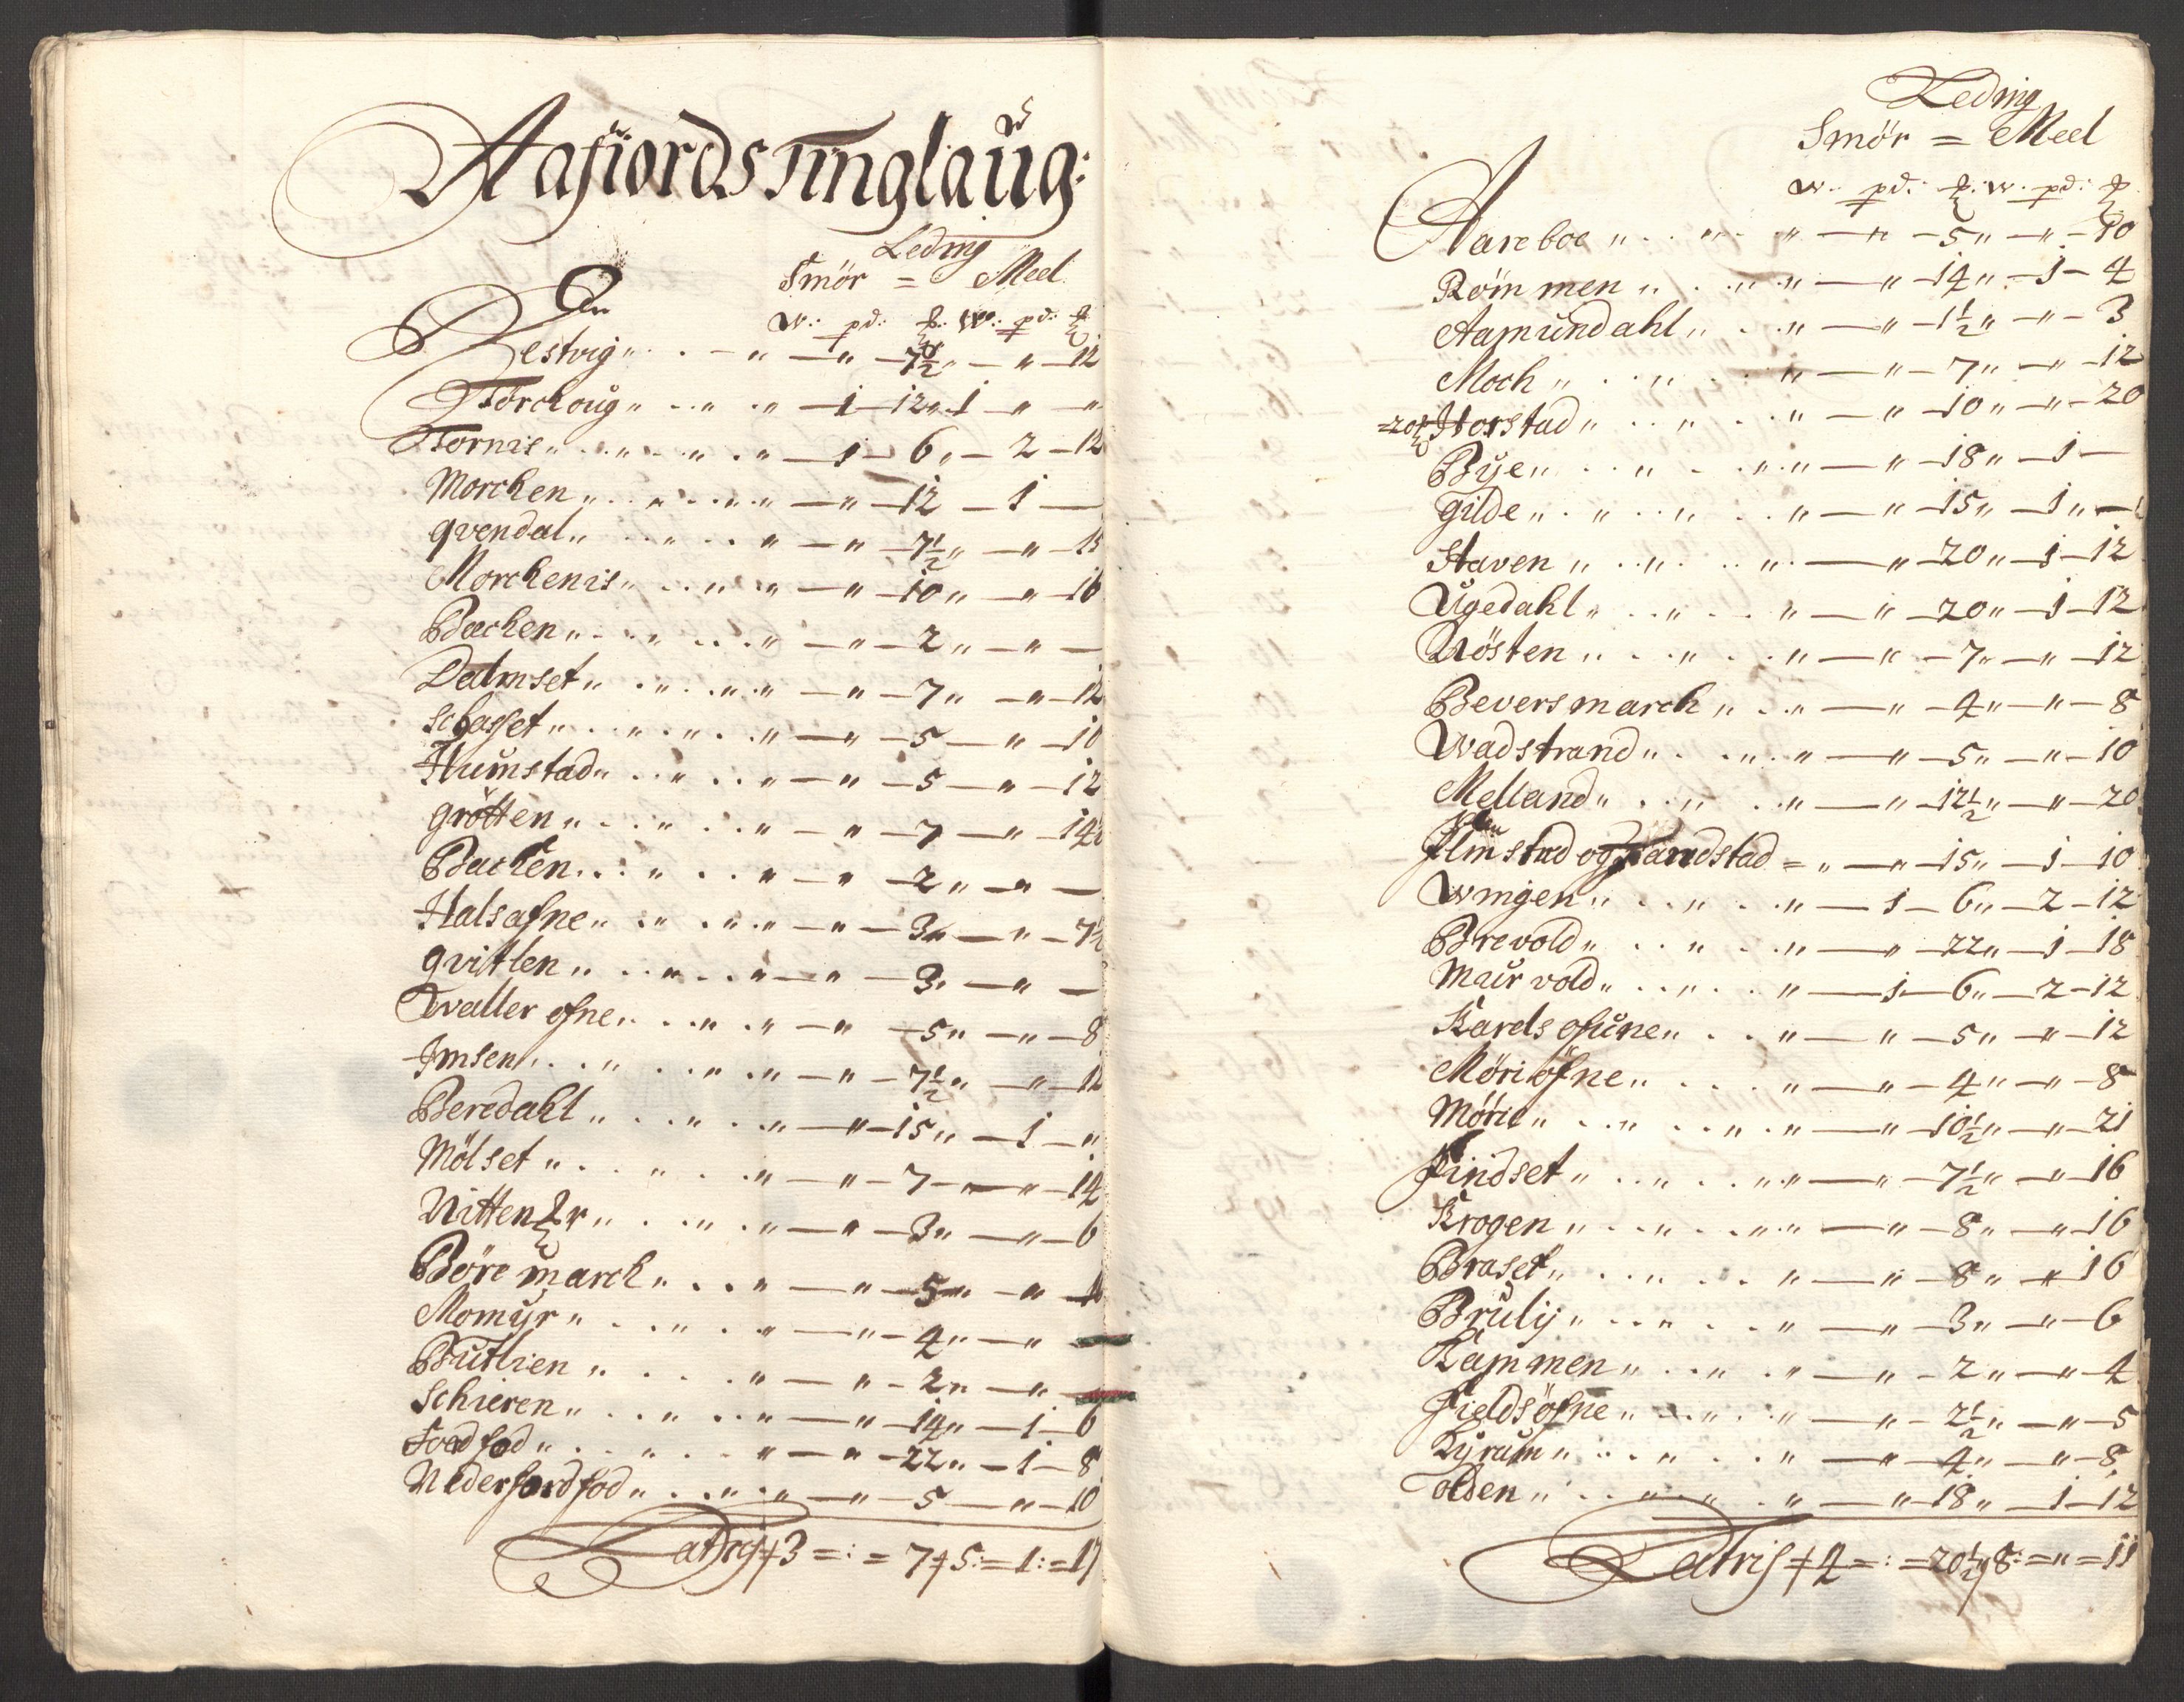 Aafiords Tinglaug:
Leding
Smör = Meel
W: pd: W: pd:
Restvig „ . . - „ — „ — 7½ „ — „ — 12
Törckoug „ . . „ . „ — 1 — 12 „ 1 — „ — „
Tornis „ . . „ . . „ . „ — 1 — 6 „ — 2 — 12
Morcken „ . . „ . . . „ — „ — 12 — 1 —
qvendal „ . . „ . . „ — „ — 7½ „ — „ — 15
Morckenis „ . . „ . „ — „ — 10 „ — „ — 16
Bachen „ . . „ . . . „ — „ — 2 „ — „ —
Dalmset „ . . „ . . „ . „ — „ — 7 „ — „ — 12
Schasset „ . . „ . „ . . „ — „ — 5 — „ — 10
Humstad „ . . „ . . „ — „ — 5 — „ — 12
grötten „ . . „ . . „ — „ — 7 — „ — 14
Bachen . . : „ . . „ — „ — 2 „ — „ —
Halsafne „ . „ . „ . „ — „ — 3 „ — „ — 7½
qvitlen „ . . „ . . „ — „ — 3 „ — „ —
Tvaller ofne „ . . „ . „ — „ — 5 „ — „ — 8
Imsen „ . . „ . . „ . „ — „ — 7½ „ — „ — 12
Beredahl „ . . „ . . „ — „ — 15 „ — 1 — „
Mölset „ . . „ . . „ — „ — 7 — „ — 14
Nitten „ . . „ . „ — „ — 3 „ — „ — 6
Böre march „ . . „ — „ — 5 „ — „
Momyr „ . . „ . „ — „ — 4 „ — „
Butlien „ . . . „ — „ — 2 „ — „
Schieren „ . . „ . . „ — „ — 14 „ — 1 — 6
Fordfod „ . . „ . . „ — „ — 22 „ — 1 — 8
Nederfordfod „ . . „ . „ — „ — 5 — „ — 10
Latris ⳨ 3 = : = 7 ⳨ 5 : = 1 : = 17
Leding
Smör = Meel
W. pd: W. pd:
Aareboe „ . . „ . „ — „ — 5 „ — „ — 10
Römmen „ . . „ „ — „ — 14 „ — 1 — 4
Aamundahl „ . . „ — „ — 1½ „ — „ — 3
Moch „ . . „ . . „ — „ — 7 „ — „ — 12
Horstad „ . . „ . . „ — „ — 10 „ — „ — 20
Bye „ . . „ . . „ . „ — „ — 18 „ — 1 —
gilde „ . „ . . „ . . „ — „ — 15 „ — 1 „ —
Staven „ . . „ . . „ . — „ — 20 „ — 1 — 12
Ugedahl „ . . „ . . „ — „ — 20 „ — 1 — 12
Nösten „ . . „ . . „ — „ — 7 „ — „ — 12
Beversmarch „ . . „ — „ — 4 „ — „ — 8
Wadstrand „ . . „ . „ — „ — 5 „ — „ — 10
Melland „ . . „ . . „ — „ — 12½ „ — „ — 20
Ilmstad og Handstad = „ — „ — 15 „ — 1 — 10
Wingen „ . . „ . . „ — 1 — 6 „ — 2 — 12
Brevold „ . . „ . . „ — „ — 22 „ — 1 — 18
Maurvold „ . . „ . . „ — 1 — 6 „ — 2 — 12
Karels ofune „ . . „ — „ — 5 „ — „ — 12
Möriöfne „ . . . „ — „ — 4 „ — „ — 8
Mörie „ . . „ . . „ . „ — „ — 10½ „ — „ — 21
Findset „ . . „ . . „ . „ — „ — 7½ „ — „ — 16
Krogen „ . . „ . . „ . „ — „ — 8 „ — „ — 16
Braset „ . . „ . . „ — „ — 8 „ — „ — 16
Brulij „ . . „ . . „ — „ — 3 „ — „ — 6
Kammen „ . . „ . „ — „ — 2 „ — „ — 4
Fieldsöfne „ . . „ . „ — „ — 2½ „ — „ — 5
Kyrum „ . . „ . . „ — „ — 4 „ — „ — 8
olden „ . . „ . „ . „ — „ — 18 „ — 1 — 12
Latris ⳨ 2 = : = 20½ ⳨ 8 : = „ = 11